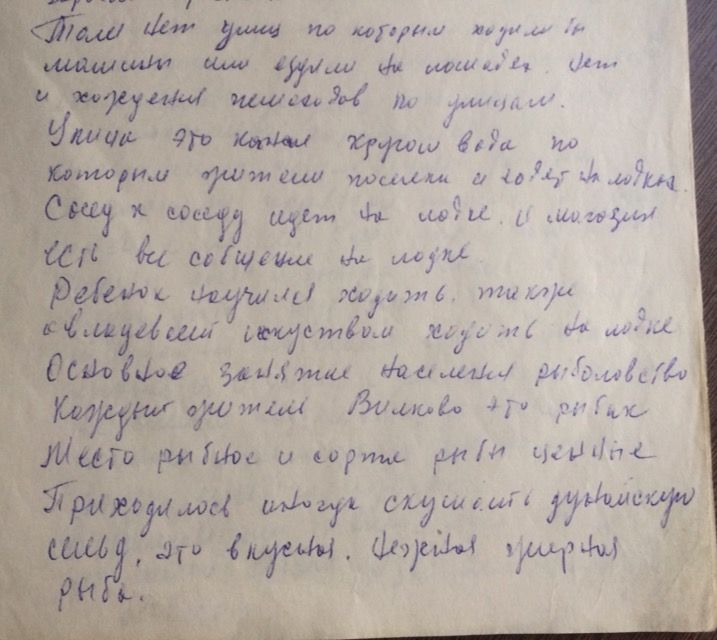 Там нет улиц по которым ходили бы
машины или ездили на лошадях. нет
и хождения пешеходов по улицам.
Улица это канал кругом вода по
которым жители поселка и ходят на лодках.
Сосед к соседу идет на лодке. и магазин
есть все сообщение на лодке.
Ребенок научился ходить. также
овладевает искуством ходить на лодке
Основное занятие населения рыболовство
Каждый житель Вилково это рыбак
Место рыбное и сорта рыбы ценные
Приходилось иногда скушать дунайскую
сельд, это вкусная. нежная жирная
рыба.